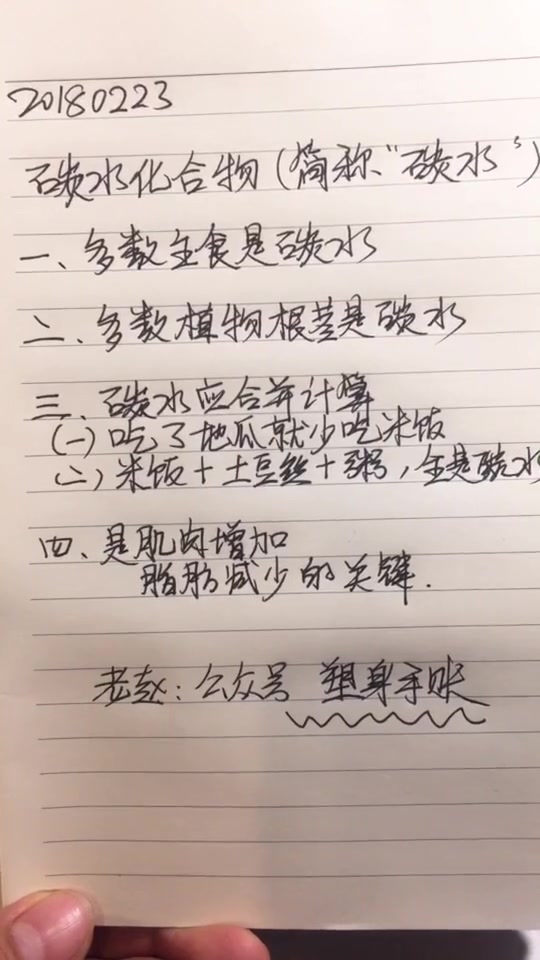 20180223
碳水化合物(简称“碳水”)
一、多数主食是碳水
二、多数植物根茎是碳水
三、碳水应合并计算
(一)吃了地瓜就少吃米饭
(二)米饭+土豆丝+粥,全是碳水
四、是肌肉增加
脂肪减少的关键.
老赵:公众号 塑身手账